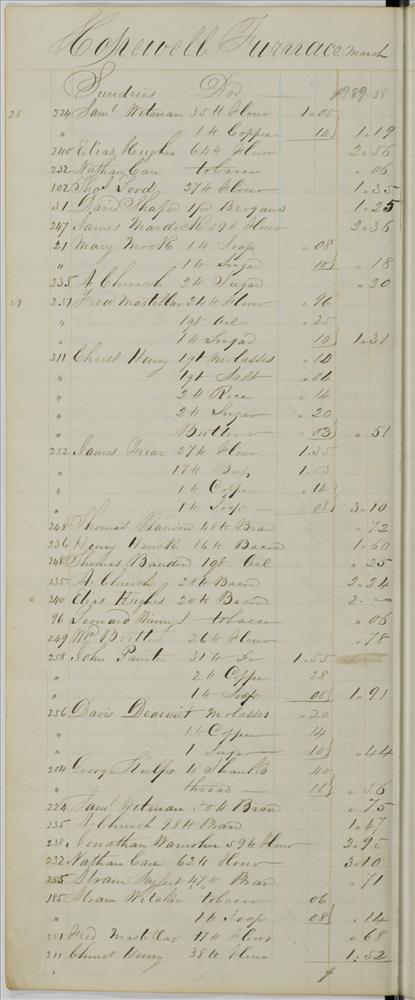 Hopewell Furnace March
Sundries Dor $989.38
28 224 Saml Witman 35 lb Flour 1.05
" 1 lb Coffee 14 1.19
240 Elias Hughes 64 lb Flour 2.56
232 Nathan Care tobacco .06
102 Thos Lord 27 lb Flour 1.35
31 David Shafer 1 pr Brogans 1.25
247 James Mardock 59 lb Flour 2.36
21 Mary Mock 1 lb Soap .08
" 1 lb Sugar 10 .18
235 A. Church 2 lb Sugar .20
29 251 Fred Mastellar 24 lb Flour .96
" 1 qt Oil .25
" 1 lb Sugar 10 1.31
211 Christ Henry 1 qt Molasses .14
" 1 qt Salt
" 2 lb Rice .14
" 2 lb Sugar .20
" 03 .51
252 James Friar 27 lb Flour 1.35
" 17 lb 1.53
" 1 lb Coffee .14
" 1 lb Soap .08 3.10
248 Thomas 48 lb Bran .72
236 Henry Houck 16 lb Bacon 1.60
248 Thomas 1 qt Oil .25
235 A. Church 28 lb Bacon 2.24
240 Elias Hughes 20 lb Bacon 2.00
96 Leonard tobacco .06
249 Wm 26 lb Flour .78
258 John Painter 31 lb Do 1.55
" 2 lb Coffee 28
" 1 lb Soap 08 1.91
256 Davis Molasses .20
" 1 lb Coffee 14
" 1 Sugar 10 .44
204 George 4 40
" thread 16 .56
224 Saml Witman 50 lb Bran .75
235 A. Church 98 lb Bran 1.47
238 Jonathan 59 lb Flour 2.95
232 Nathan Care 62 lb Flour 3.10
255 47 lb Bran .71
185 Hiram Witaker tobacco 06
" 1 lb Soap 08 .14
251 Fred Mastellar 17 lb Flour .68
211 Christ Henry 38 lb Flour 1.52
$